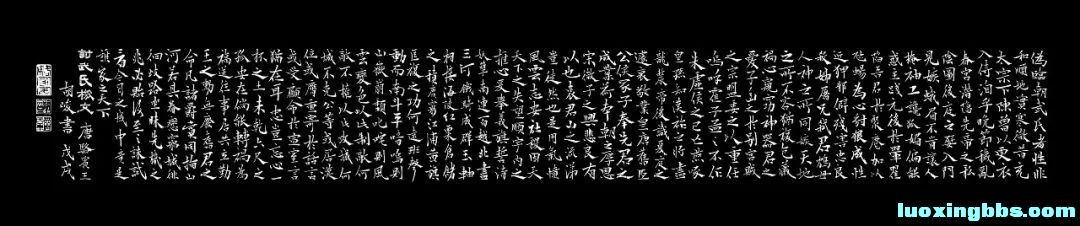 偽臨朝武氏者性非
和順地實寒微昔充
太宗下陳曾以更衣
入侍洎乎晚節穢亂
春宮潛隱先帝之私
陰圖後庭之嬖入門
見嫉蛾眉不肯讓人
掩袖工讒狐媚偏能
惑主踐元后於翬翟
陷吾君於聚麀加以
虺蜴為心豺狼成性
近狎邪僻殘害忠良
殺姊屠兄弒君鴆母
人神之所同嫉天地
之所不容猶復包藏
禍心窺竊神器君之
愛子幽之於別宮賊
之宗盟委之以重任
嗚呼霍子孟之不作
朱虛侯之已亡燕啄
皇孫知漢祚之將盡
龍漦帝后識夏庭之
遽衰敬業皇唐舊臣
公侯冢子奉先君之
成業荷本朝之厚恩
宋微子之興悲良有
以也袁君山之流涕
豈徒然哉是用氣憤
風雲志安社稷因天
下之失望順宇內之
推心爰舉義旗以清
妖孽南連百越北盡
三河鐵騎成群玉軸
相接海陵紅粟倉儲
之積靡窮江浦黃旗
匡復之功何遠班聲
動而南斗平喑嗚則
山嶽崩頹叱吒則風
雲變色以此制敵何
敵不摧以此攻城何
城不克公等或居漢
位或膺重寄於話言
或受顧命於宣室言
猶在耳忠豈忘心一
抔之土未乾六尺之
孤安在倘能轉禍為
福送往事居共立勤
王之勳無廢舊君之
命凡諸爵賞同指山
河若其眷戀窮城徘
徊歧路坐昧先幾之
兆必貽後至之誅試
看今日之域中竟是
誰家之天下
討武氏檄文 唐駱賓王
胡峻書 戊戌
luoxingbbs.com